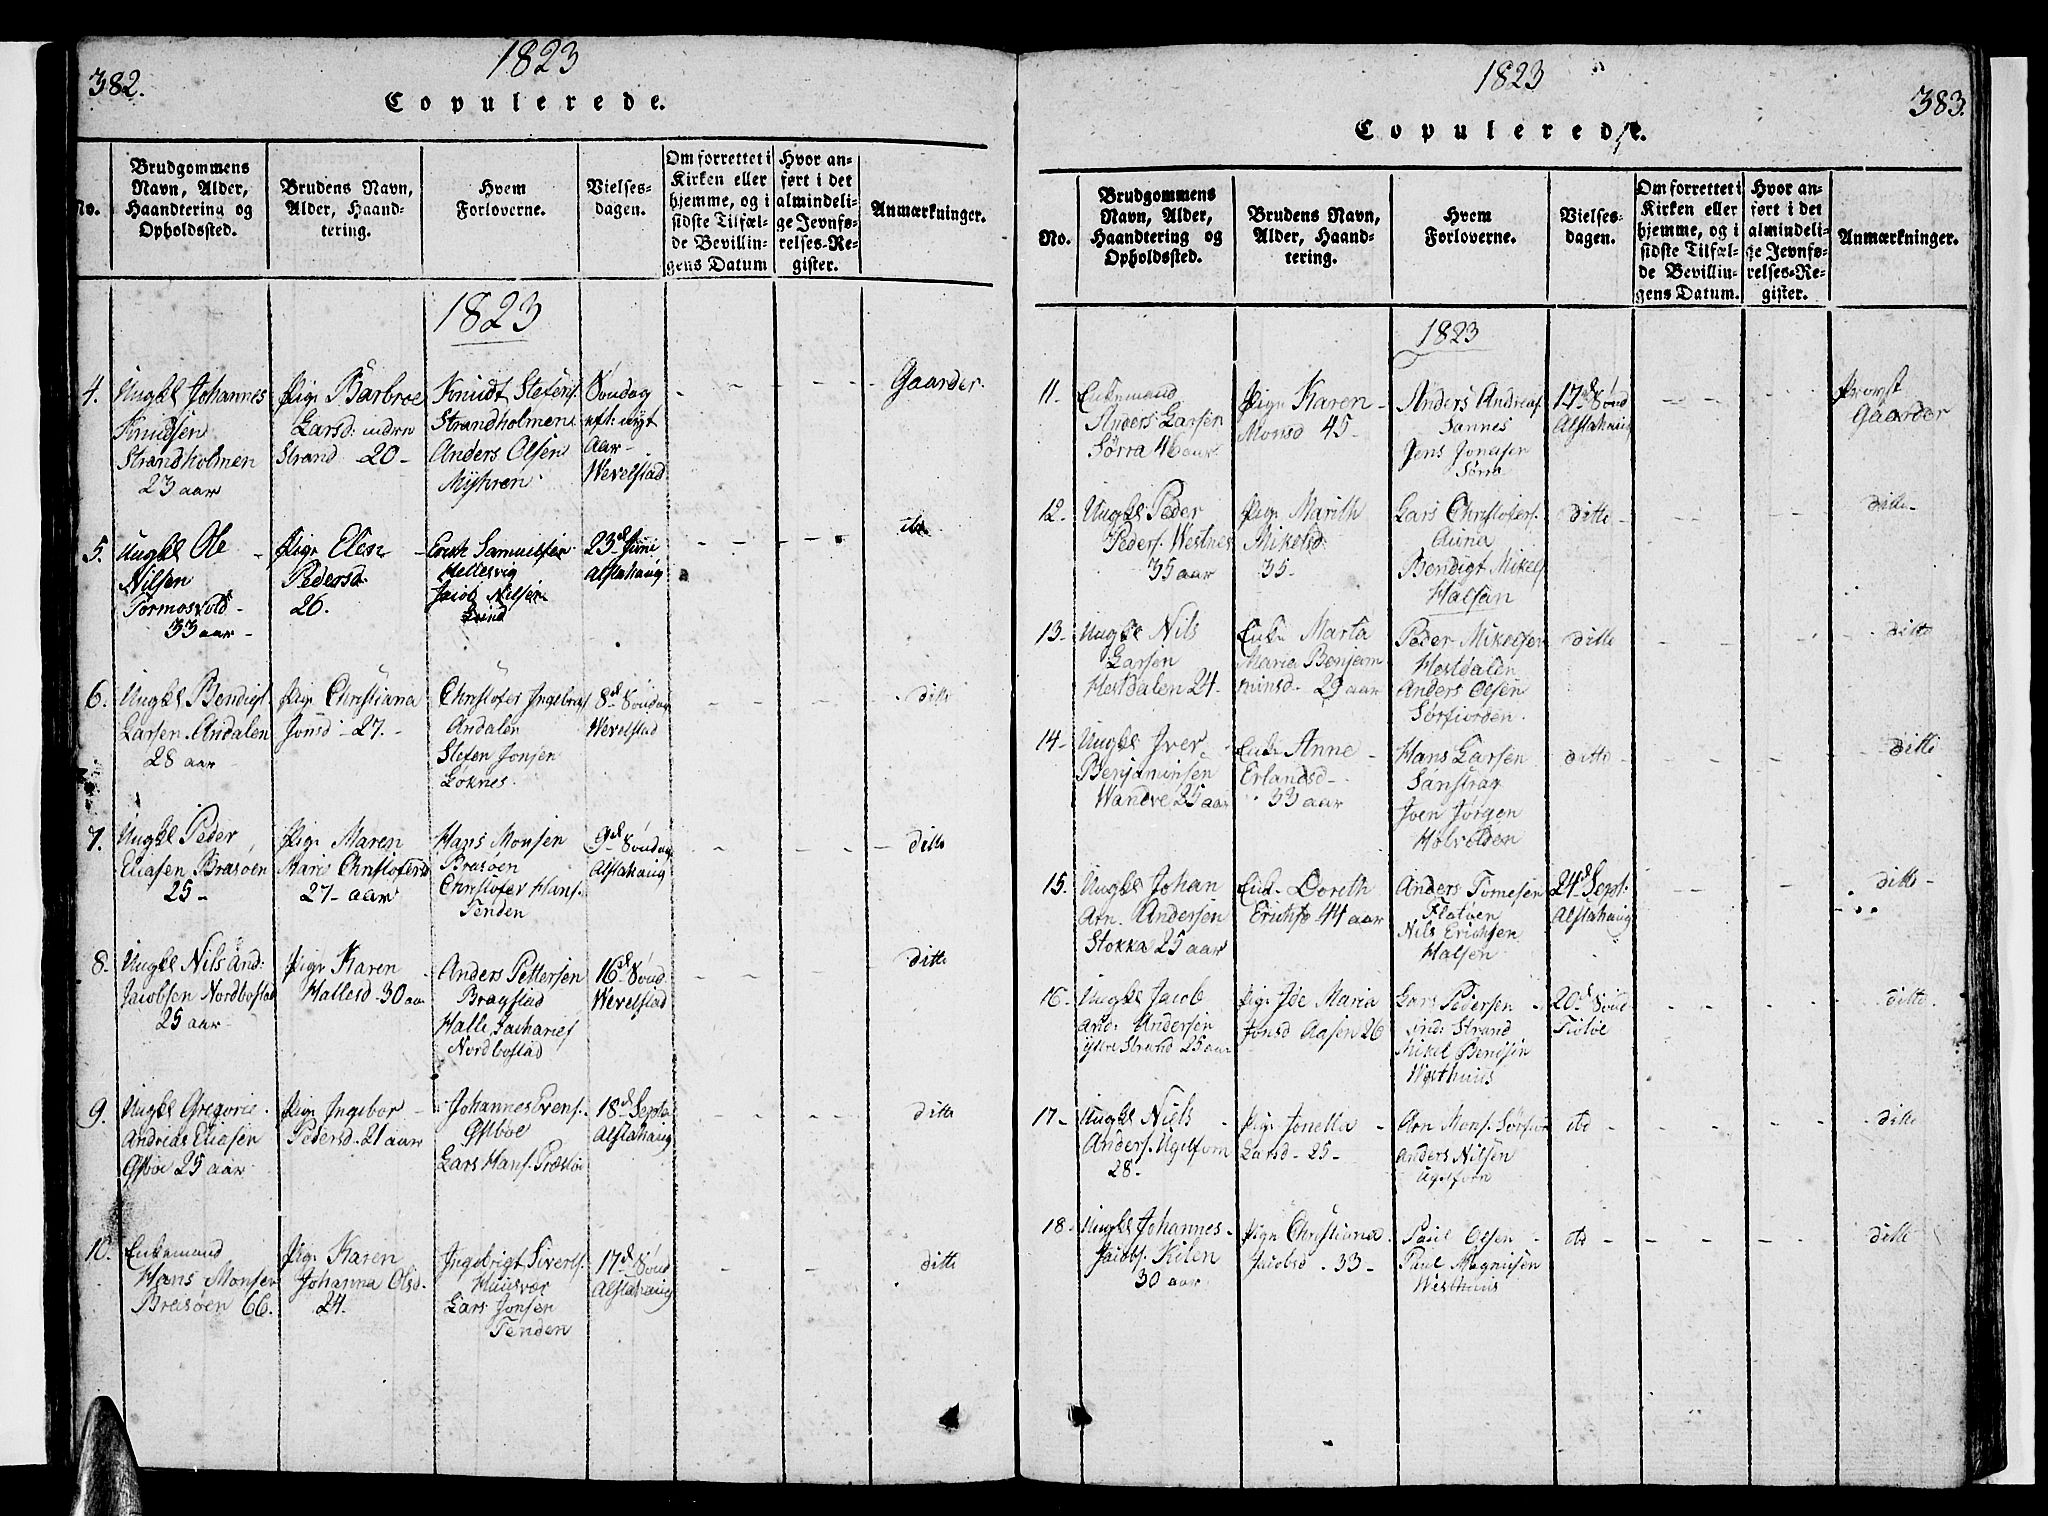 382.
1823
Copulerede.
No.
Brudgommens
Navn, Alder,
Haandtering og
Opholdssted.
Brudens Navn,
Alder, Haand-
tering.
Hvem
Forloverne.
Vielses-
dagen.
Om forrettet i
Kirken eller
hjemme, og i
sidste Tilfæl-
de Bevillin-
gens Datum
Hvor an-
ført i det
almindeli-
ge Jevnfø-
relses-Re-
gister.
Anmærkninger.
1823
4.
Ungkl Johannes
Knudsen
Strandholmen
23 aar
Pige Barbroe
Larsd: indre
Strand - 20 -
Knudt Stefens.
Strandholmen
Anders Olsen
Myhren
Søndag
eft: nyt
Aar -
Wevelstad
Gaarder
5.
Ungkl Ole
Nilsen
Tormosvold -
33 aar -
Pige Elen
Pedersd
26.
Erich Samuelsen
Hellesvig
Jacob Nilsen
23d Juni
Alstahaug
6.
Ungkl Bendigt
Larsen Andalen
28 aar
Pige Christiana
Jonsd - 27. -
Christofer Ingebrigts
Andalen
Stefen Jonsen
Loknes
8d Søndag
Wevelstad
ditto
7.
Ungkl Peder
Eliasen Brasøen
25 -
Pige Maren
Marie Christofersd
27 - aar
Hans Monsen
Brasøen
Christofer Hans.
Tenden
9d Søndag
Alstahaug
ditto
8.
Ungkl Nils And:
Jacobsen Nordbostad
25 aar
Pige Karen
Hallesd - 30 aar
Anders Pettersen
Bragstad
Halle Zacharies
Nordbostad
16d Sønd
Wevelstad
ditto
9.
Ungkl Gregorie
Andreas Eliasen
25 aar
Pige Ingebor -
Pedersd - 21 aar
Johannes Evens.
Lars Hans. Præstø
18d Septb
Alstahaug
ditto
10.
Enkemand
Hans Monsen
Breisøen 66.
Pige Karen
Johanna Olsd.
24.
Ingebrigt Siverts.
Huusvær
Lars Jonsen
Tenden
17d Sønd
Alstahaug
ditto
1823
383.
Copulerede.
No.
Brudgommens
Navn, Alder,
Haandtering og
Opholdssted.
Brudens Navn,
Alder, Haand-
tering.
Hvem
Forloverne.
Vielses-
dagen.
Om forrettet i
Kirken eller
hjemme, og i
sidste Tilfæl-
de Bevillin-
gens Datum.
Hvor an-
ført i det
almindeli-
ge Jevnfø-
relses-Re-
gister.
Anmærkninger.
1823
11.
Enkemand
Anders Larsen
Sørra 46 aar
Pige Karen -
Monsd 45 -
Anders Andreas
Sannes
Jens Jonesen
Sørra
17d Sønd
Alstahaug
Provst
Gaarder
12.
Ungkl Peder
Peders. Westnes
35 aar
Pige Marith
Mikelsd
35 -
Lars Christofers.
Auna
Bendigt Mikels
Halsen
ditto
ditto -
13 -
Ungkl Nils
Larsen
Hestdalen 24 -
Enke Marta
Maria Benjam
minsd - 29 aar
Peder Mikelsen
Hestdalen
Anders Olsen
Sørfiorden.
ditto
ditto
14 -
Ungkl Iver -
Benjaminsen
Wandve 25 aar
Enke Anne -
Erlandsd -
33 aar
Hans Larsen
Sanstrax
Joen Jørgen
Holvolden
ditto -
ditto
15.
Ungkl Johan
Arn. Andersen
Stokka 25 aar
Enk- Doreth
Erichsd 44 aar
Anders Tomesen
Flatøen
Nils Erichsen
Halsen
24d Sept:
Alstahaug
ditto -
16 -
Ungkl Jacob
And: Andersen
ytre Strand 25 aar
Pige Ide Maria
Jonsd Aasen 26
Lars Pedersen
ind: Strand
Mikel Bendsen
Westhuus
20d Sønd
Tiøtøe
ditto.
17 -
Ungkl Niels
Anders. Ugelfom
28 -
Pige Jonetta
Larsd - 25 -
Arn Mons. Sørfior
Anders Nilsen
do -
ditto
18.
Ungkl Johannes -
Jacobs. Kilen
30 aar
Pige Christiana
Jacobsd - 33 -
Paul Olsen -
Paul Magnusen
Westhuus
do -
ditto